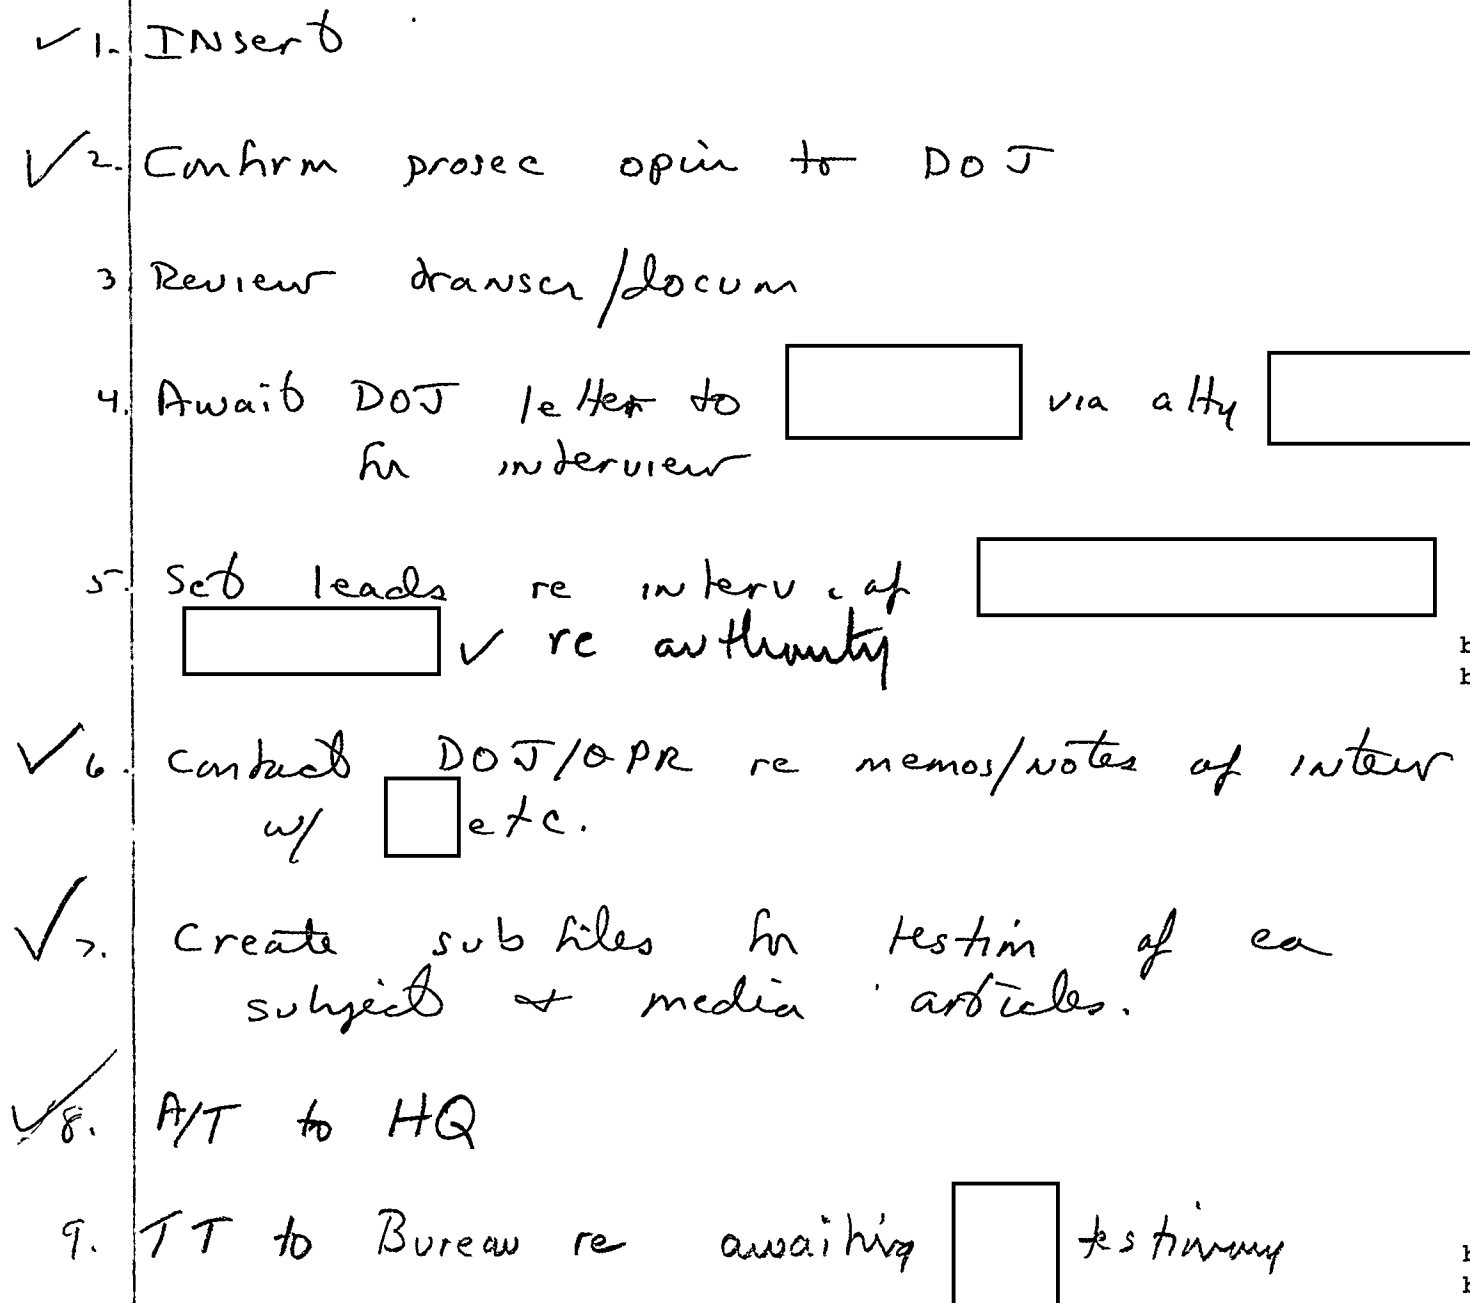 ✓ 1. INsert
✓ 2. Confirm prosec opin to DOJ
3 Review transcr/docum
4. Await DOJ letter to via atty
for interview
5. Set leads re interv. of
✓ re authority
b
b
✓ 6. Contact DOJ/OPR re memos/notes of interv
w/ etc.
✓ 7. Create sub files for testim of ea
subject + media articles.
✓ 8. A/T to HQ
9. TT to Bureau re awaiting testimony
b
b